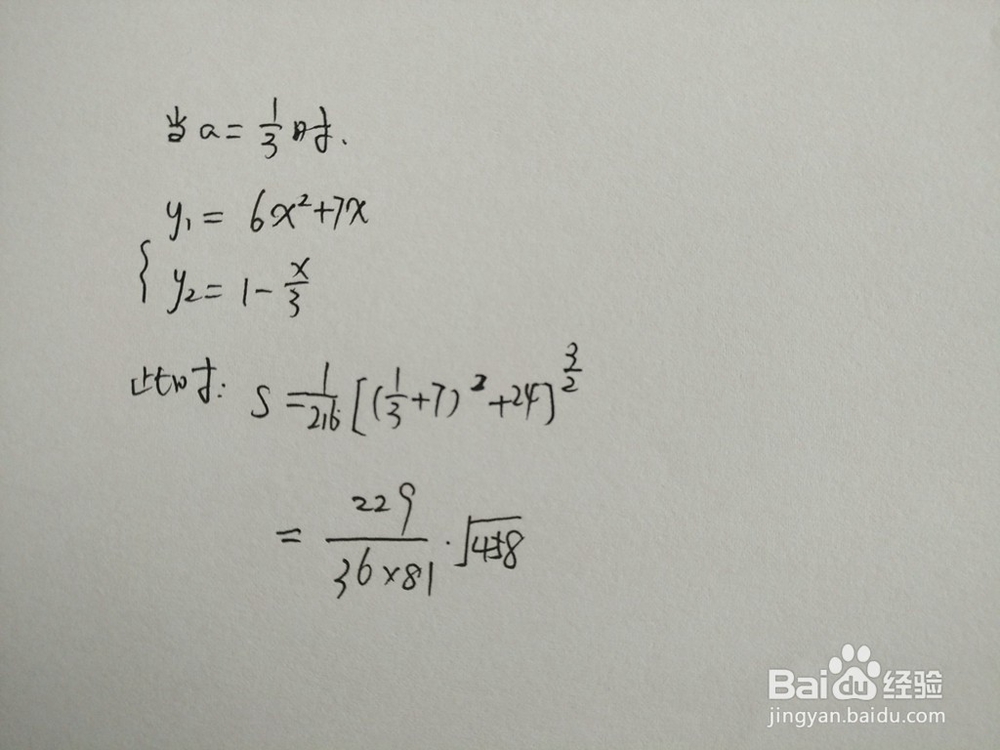 当a=1/3时.
y₁= 6x²+7x
{ y₂= 1-x/3
此时: S=1/216[(1/3+7)²+24]^(3/2)
= 229/(36×81)·√458
Baidu经验
jingyan.baidu.com